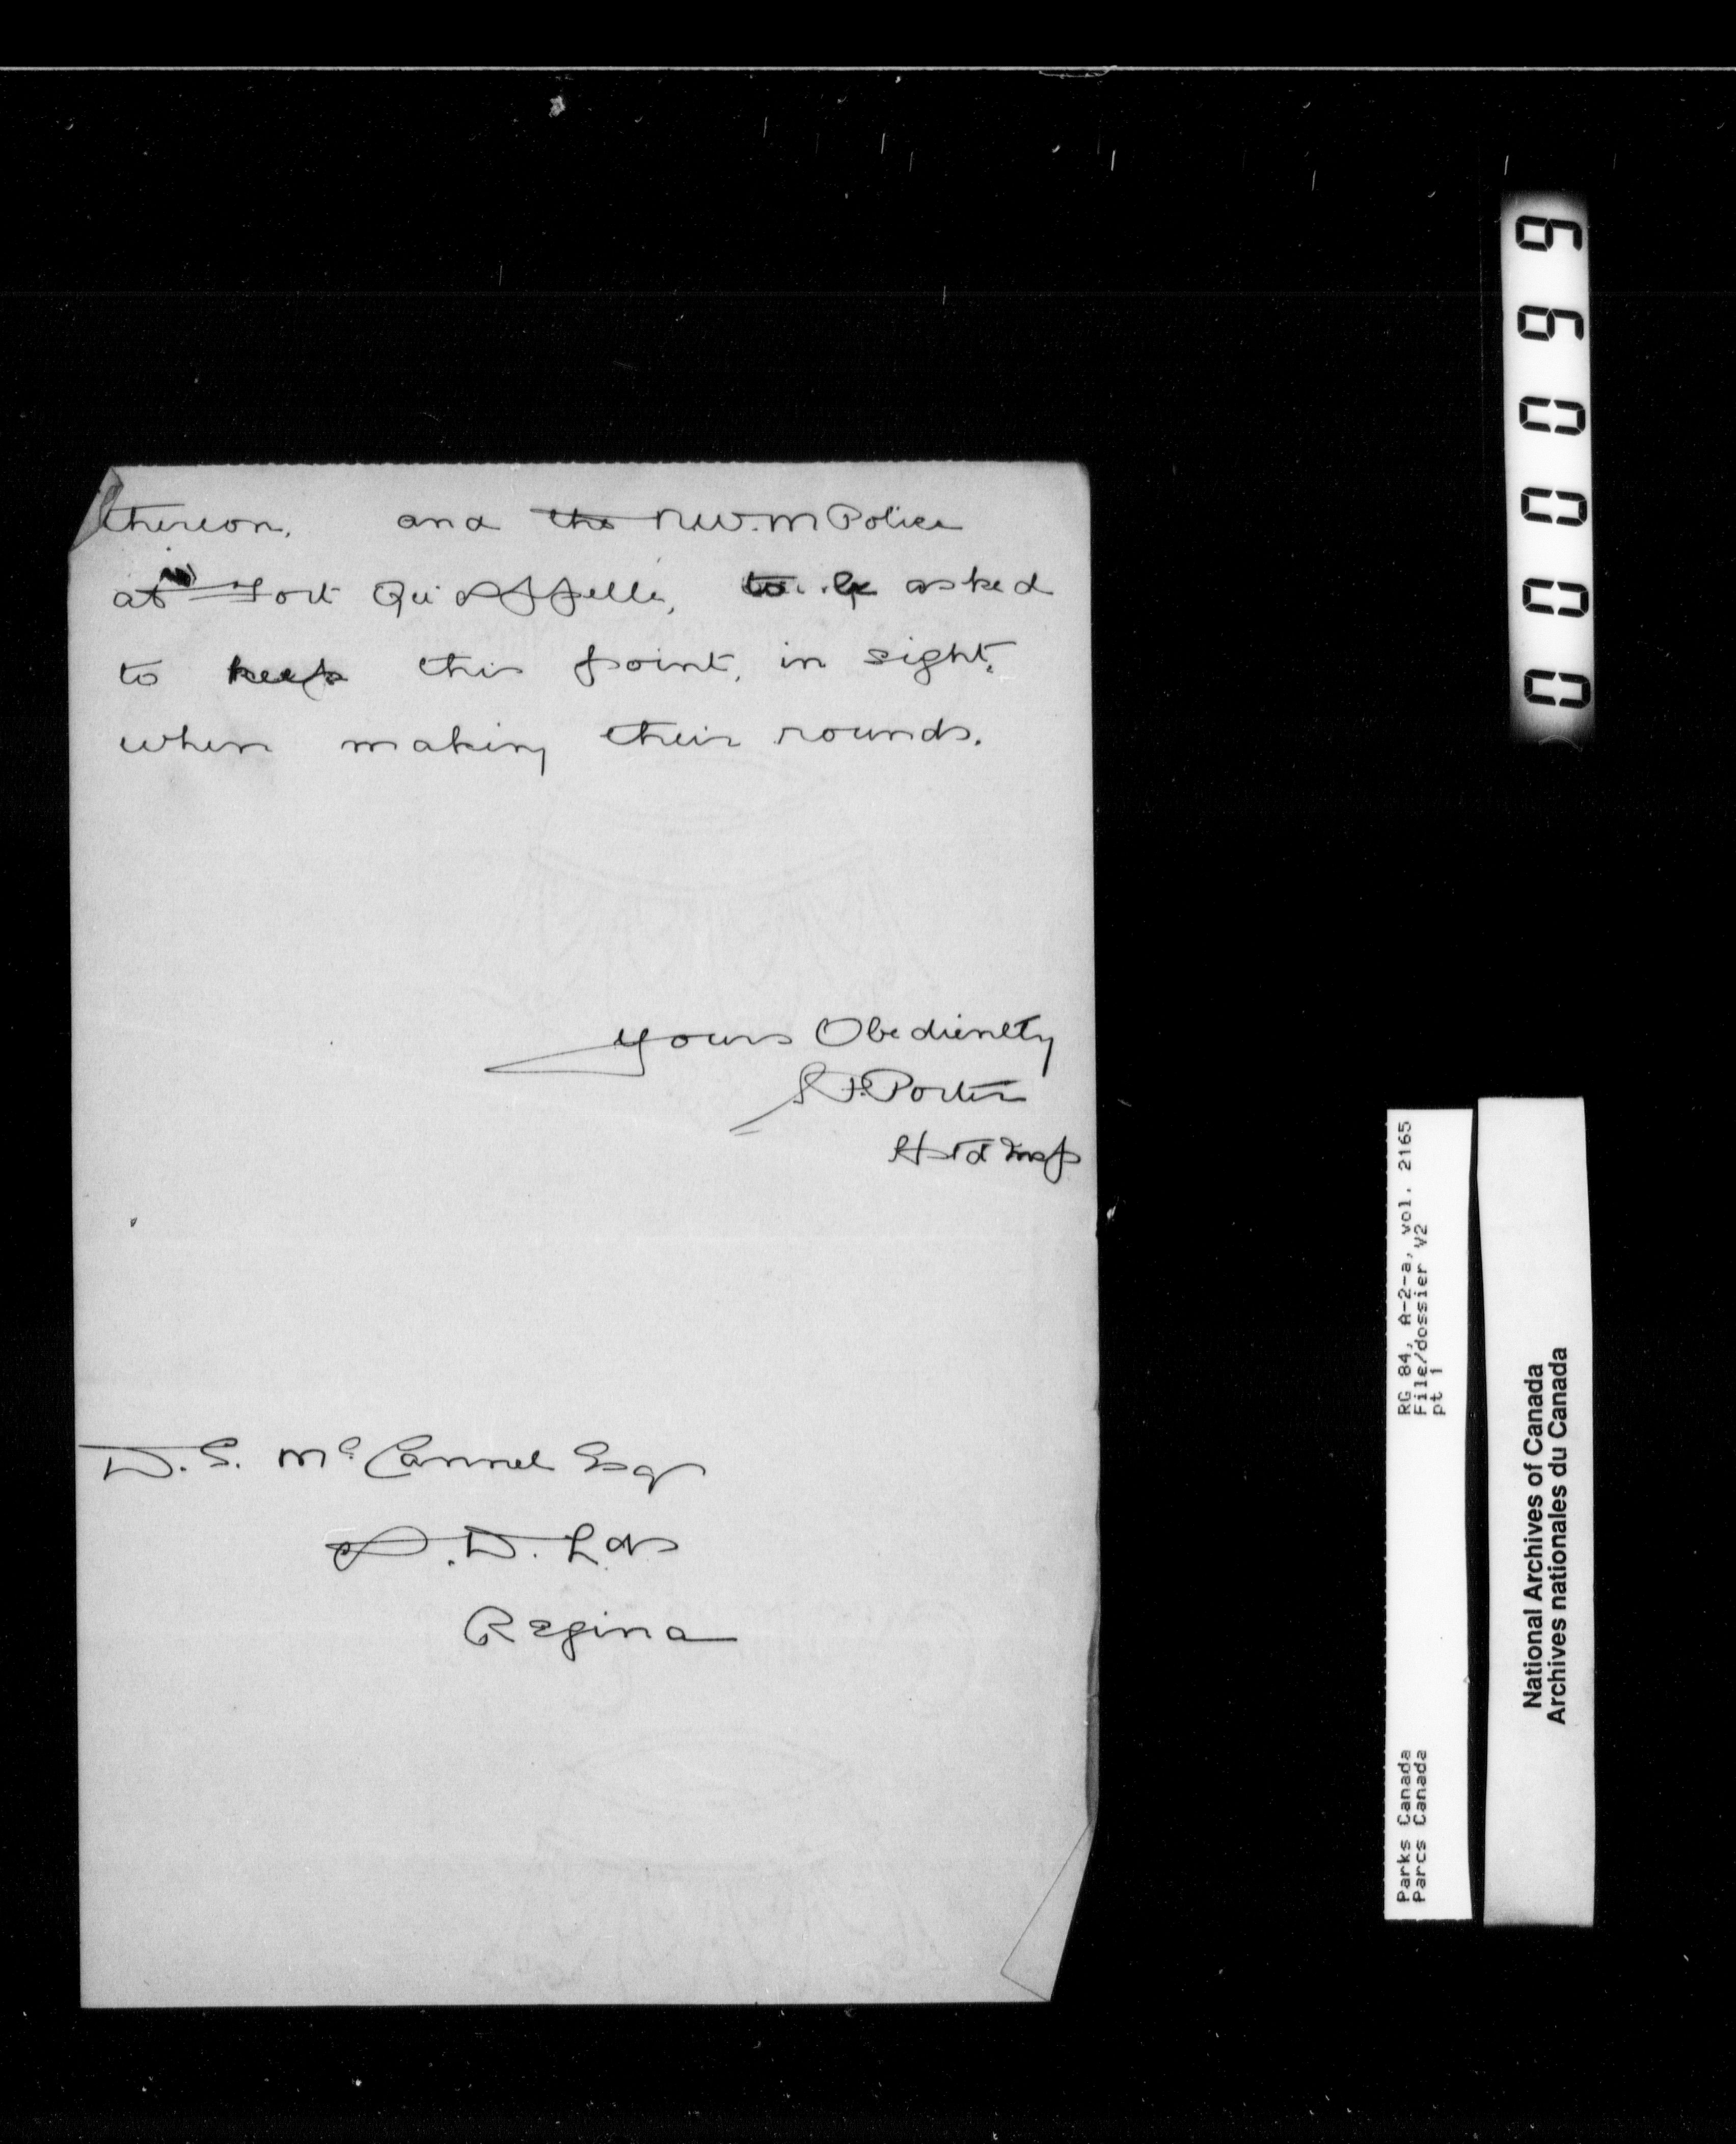 thereon, and the N.W.M Police
at Fort Qu'Appelle, to be asked
to keep this point, in sight,
when making their rounds.
Yours Obediently
S.F. Porter
Hstd Insp
D.S. McCannel Esq
A.D. Lds
Regina
000099
RG 84, A-2-a, vol. 2165
File/dossier V2
pt 1
Parks Canada
Parcs Canada
National Archives of Canada
Archives nationales du Canada